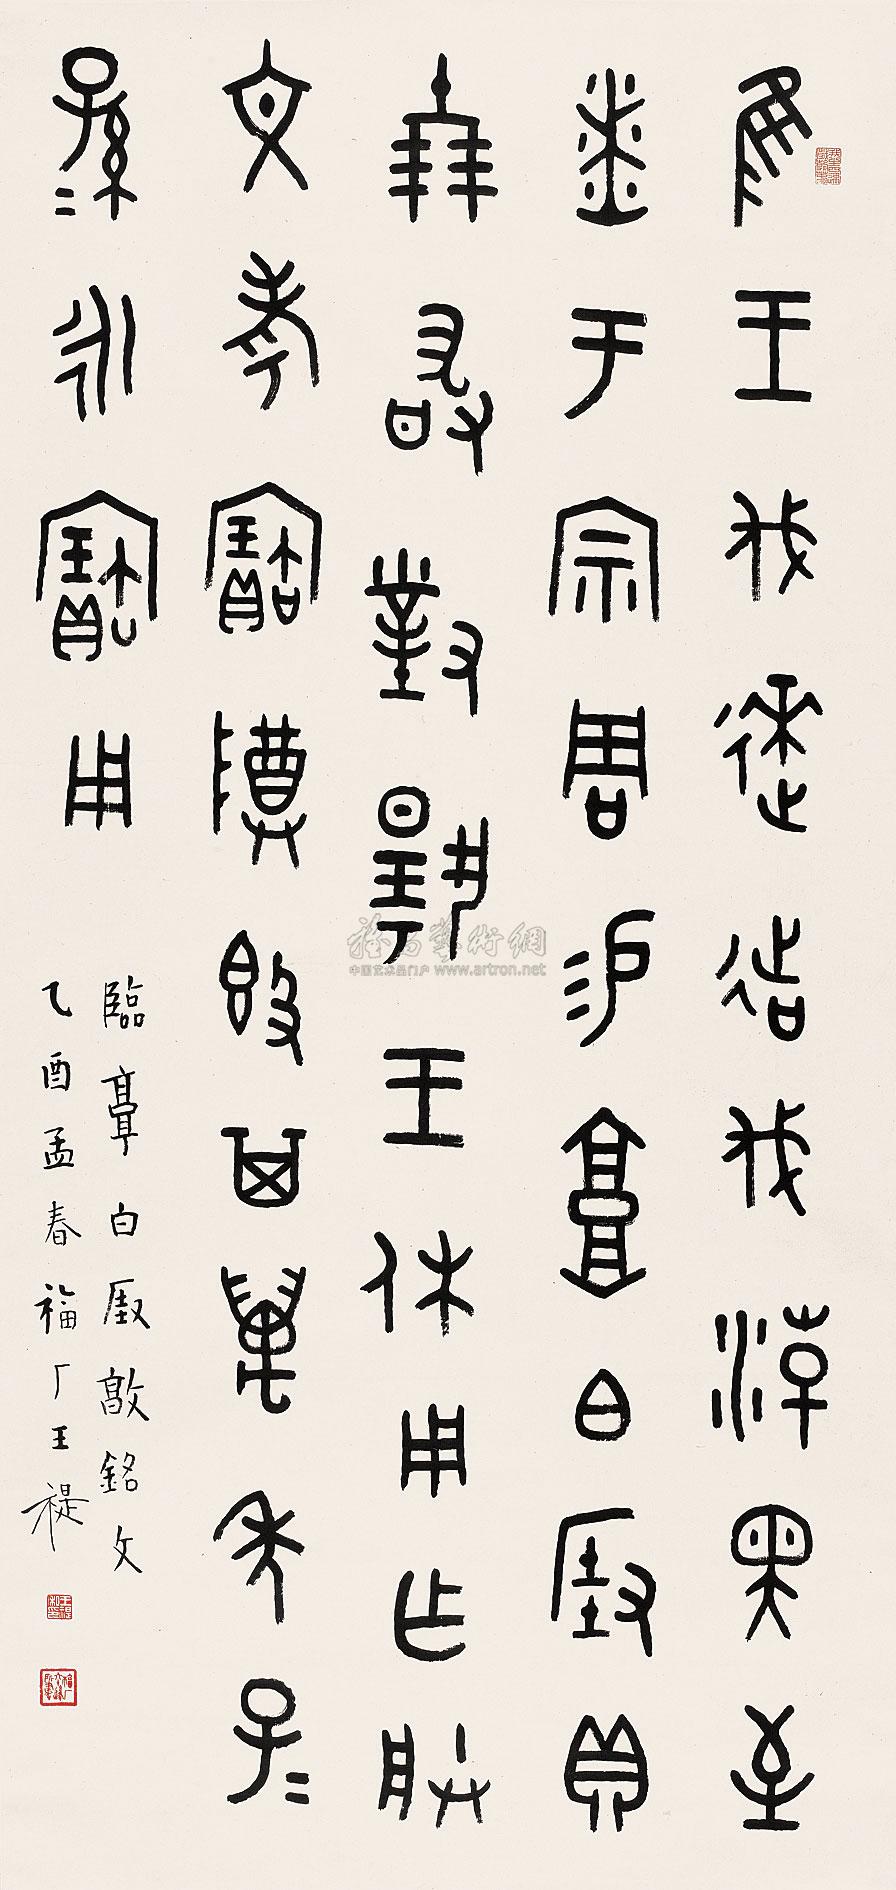 隹王伐逨徣伐淖黑至
尞于宗周易𩫏白㕑貝
十朋敢對揚王休用乍朕
文考寶尊𣪘其萬年子=
孫=永寶用
臨𩫏白㕑敦銘文
乙酉孟春福厂王禔
雅昌藝術網
中国艺术品门户 www.artron.net